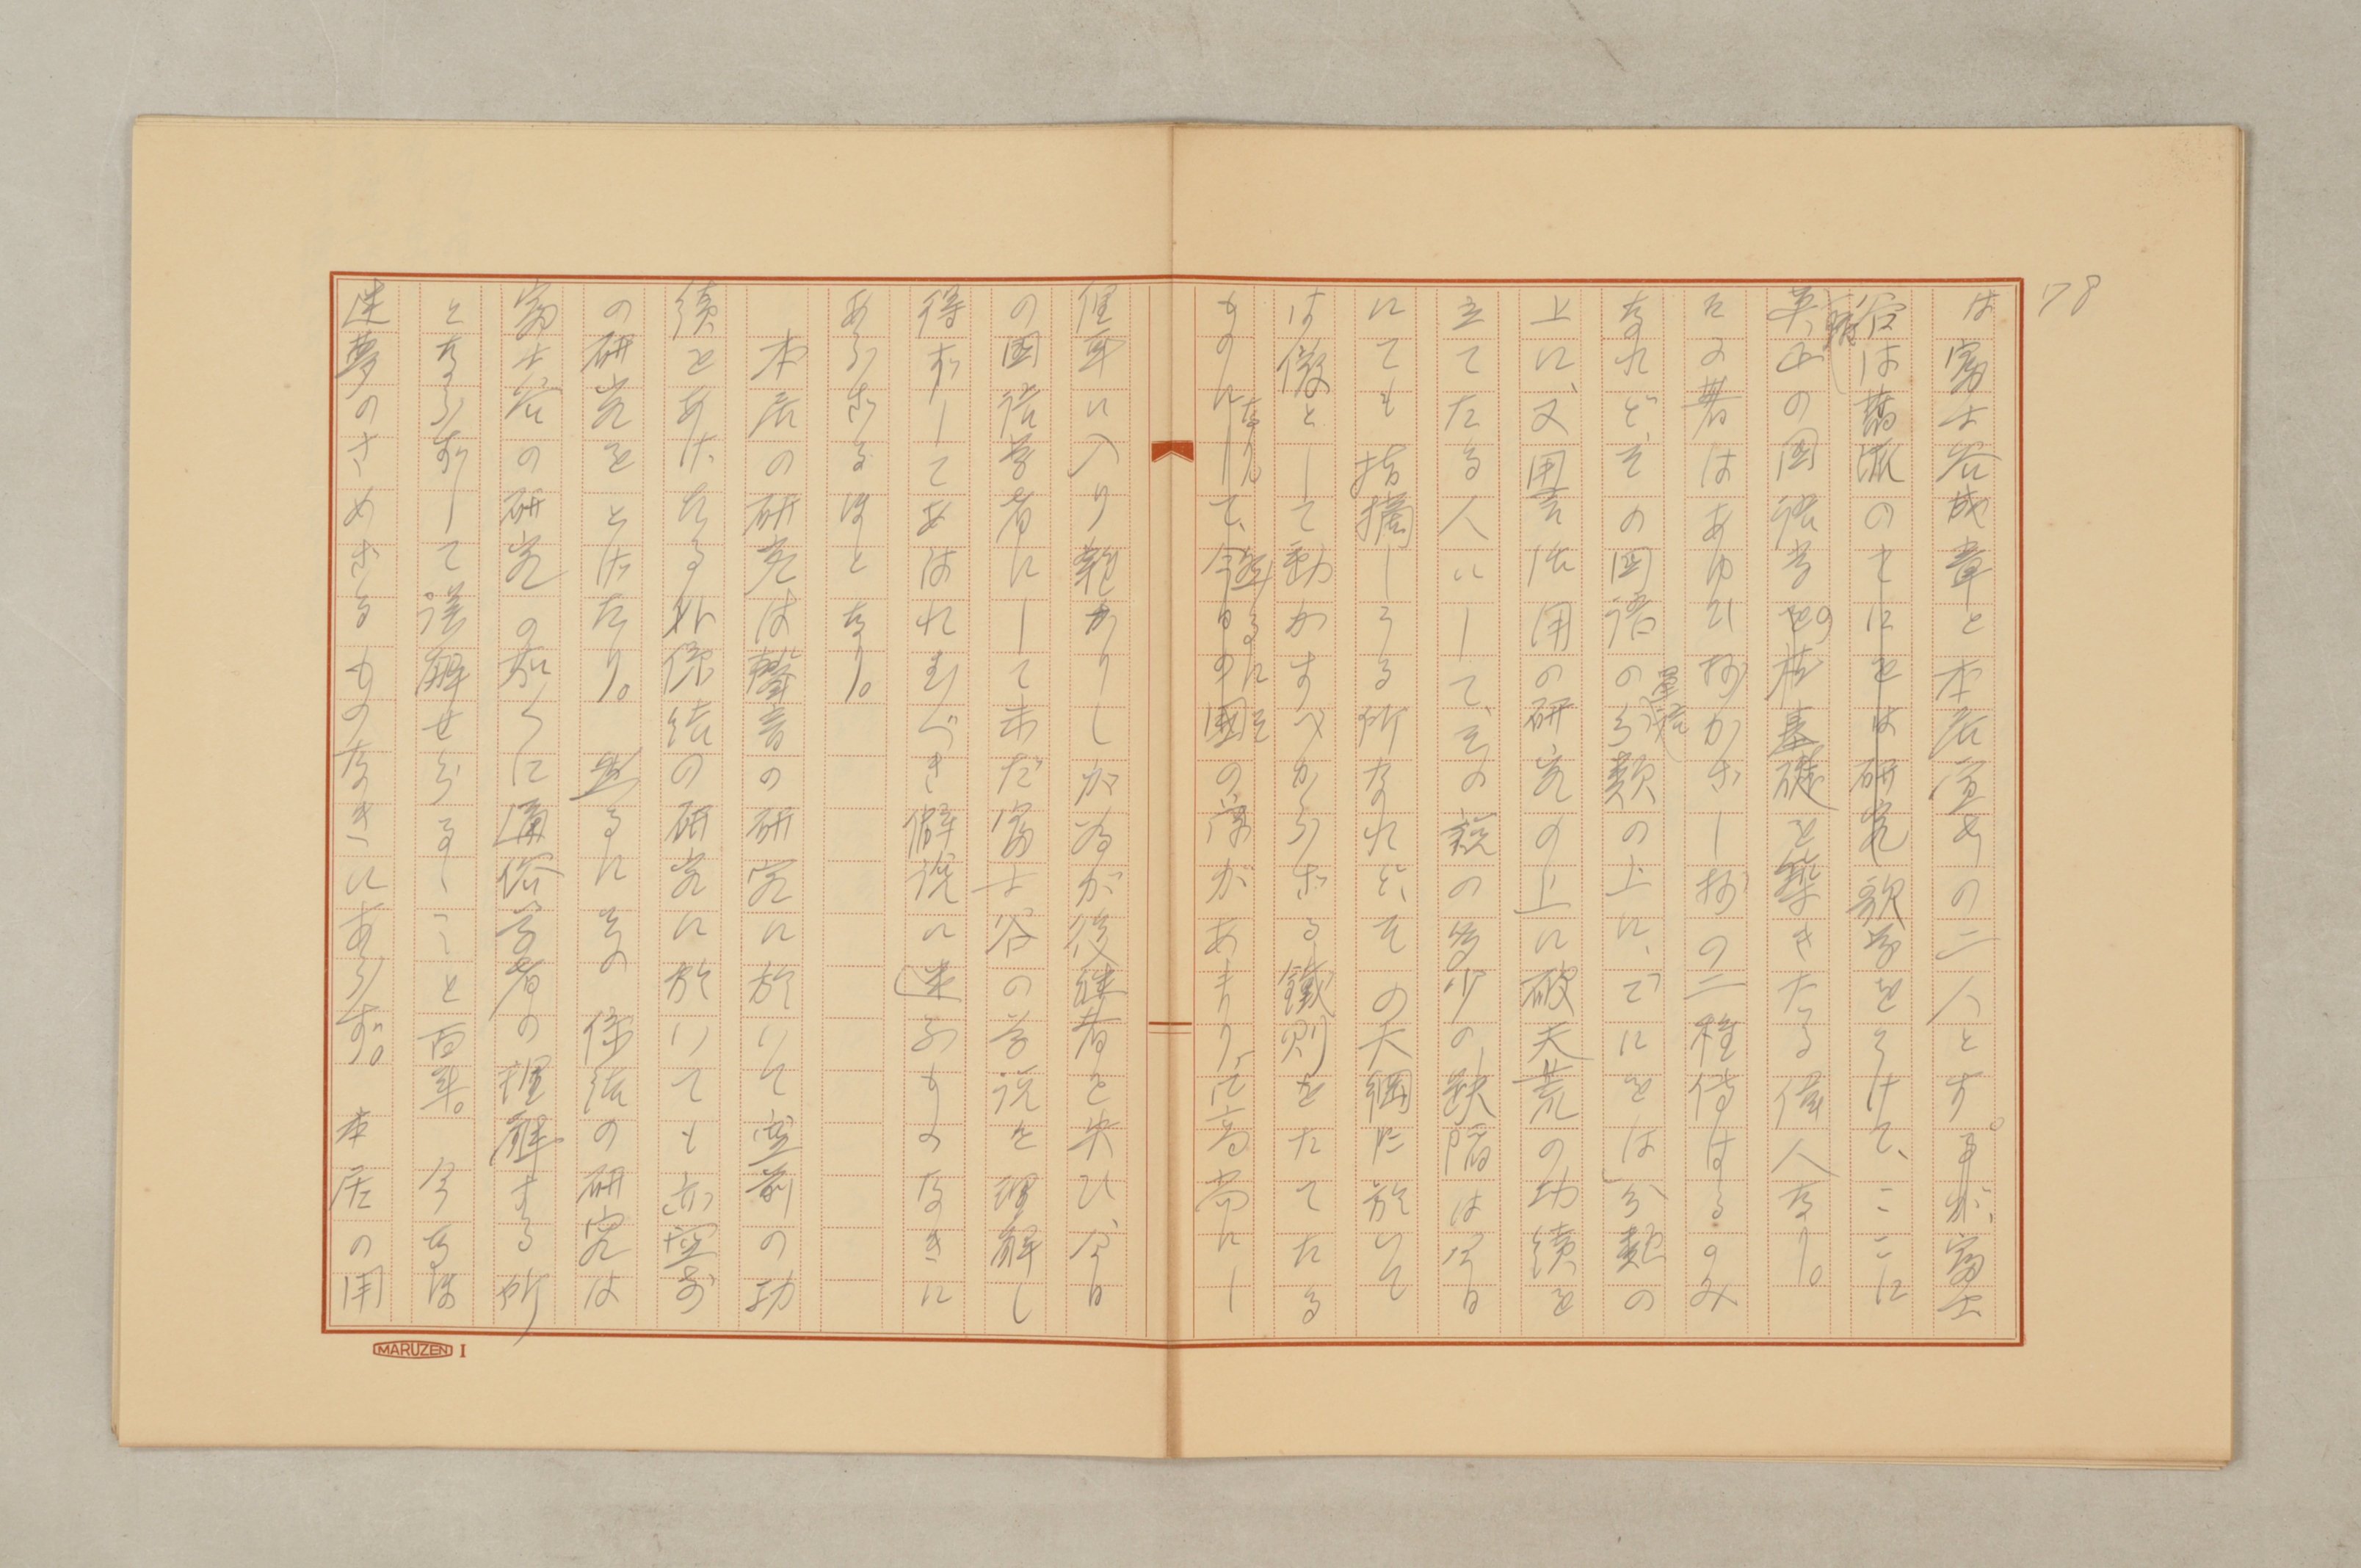 78
は富士谷成章と本居宣長の二人とす。富士
谷は舊派の歌学をうけて、ここに
真正の国語学の基礎を築きたる偉人なり。
その著はあゆひ抄かざし抄の二種傳はるのみ
なれど、その国語の単語分類の上に、「てにをは」分類の
上に、又用言活用の研究の上に破天荒の功績を
立てたる人にして、その説の多少の缺陥は今日
にても指摘しうる所なれど、その大綱に於いて
は儼として動かすべからざる鐵則をたてたる
ものなり。然るにその学があまりに高尚にし
俚耳に入り難かりしが為が後継者を失ひ、今日
の国語学者にして未だ富士谷の学説を理解し
得ずしてあはれむべき僻説に迷ふものなきに
あらざるほどなり。
本居の研究は聲音の研究に於いて空前の功
績をあげたる外係結の研究に於いても亦空前
の研究をとげたり。然るにその係結の研究は
富士谷の研究の如くに通俗学者の理解する所
とならずして誤解せらるゝこと百年。今なほ
迷夢のさめざるものなきにあらず。本居の用
MARUZEN I